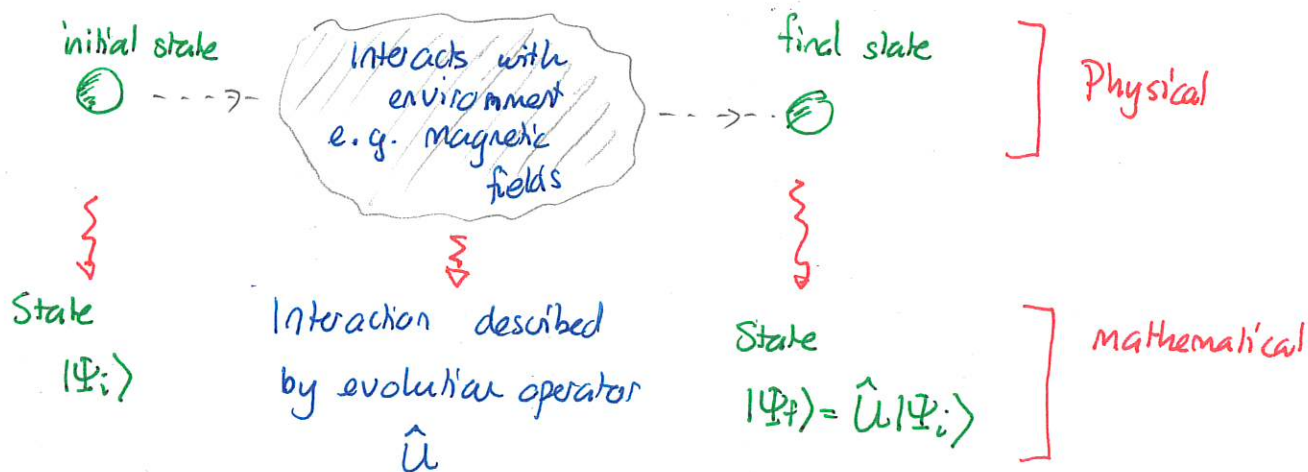 initial state
Interacts with
environment
e.g. magnetic
fields
final state
Physical
State
|Ψi⟩
Interaction described
by evolution operator
Û
State
|Ψf⟩ = Û|Ψi⟩
mathematical